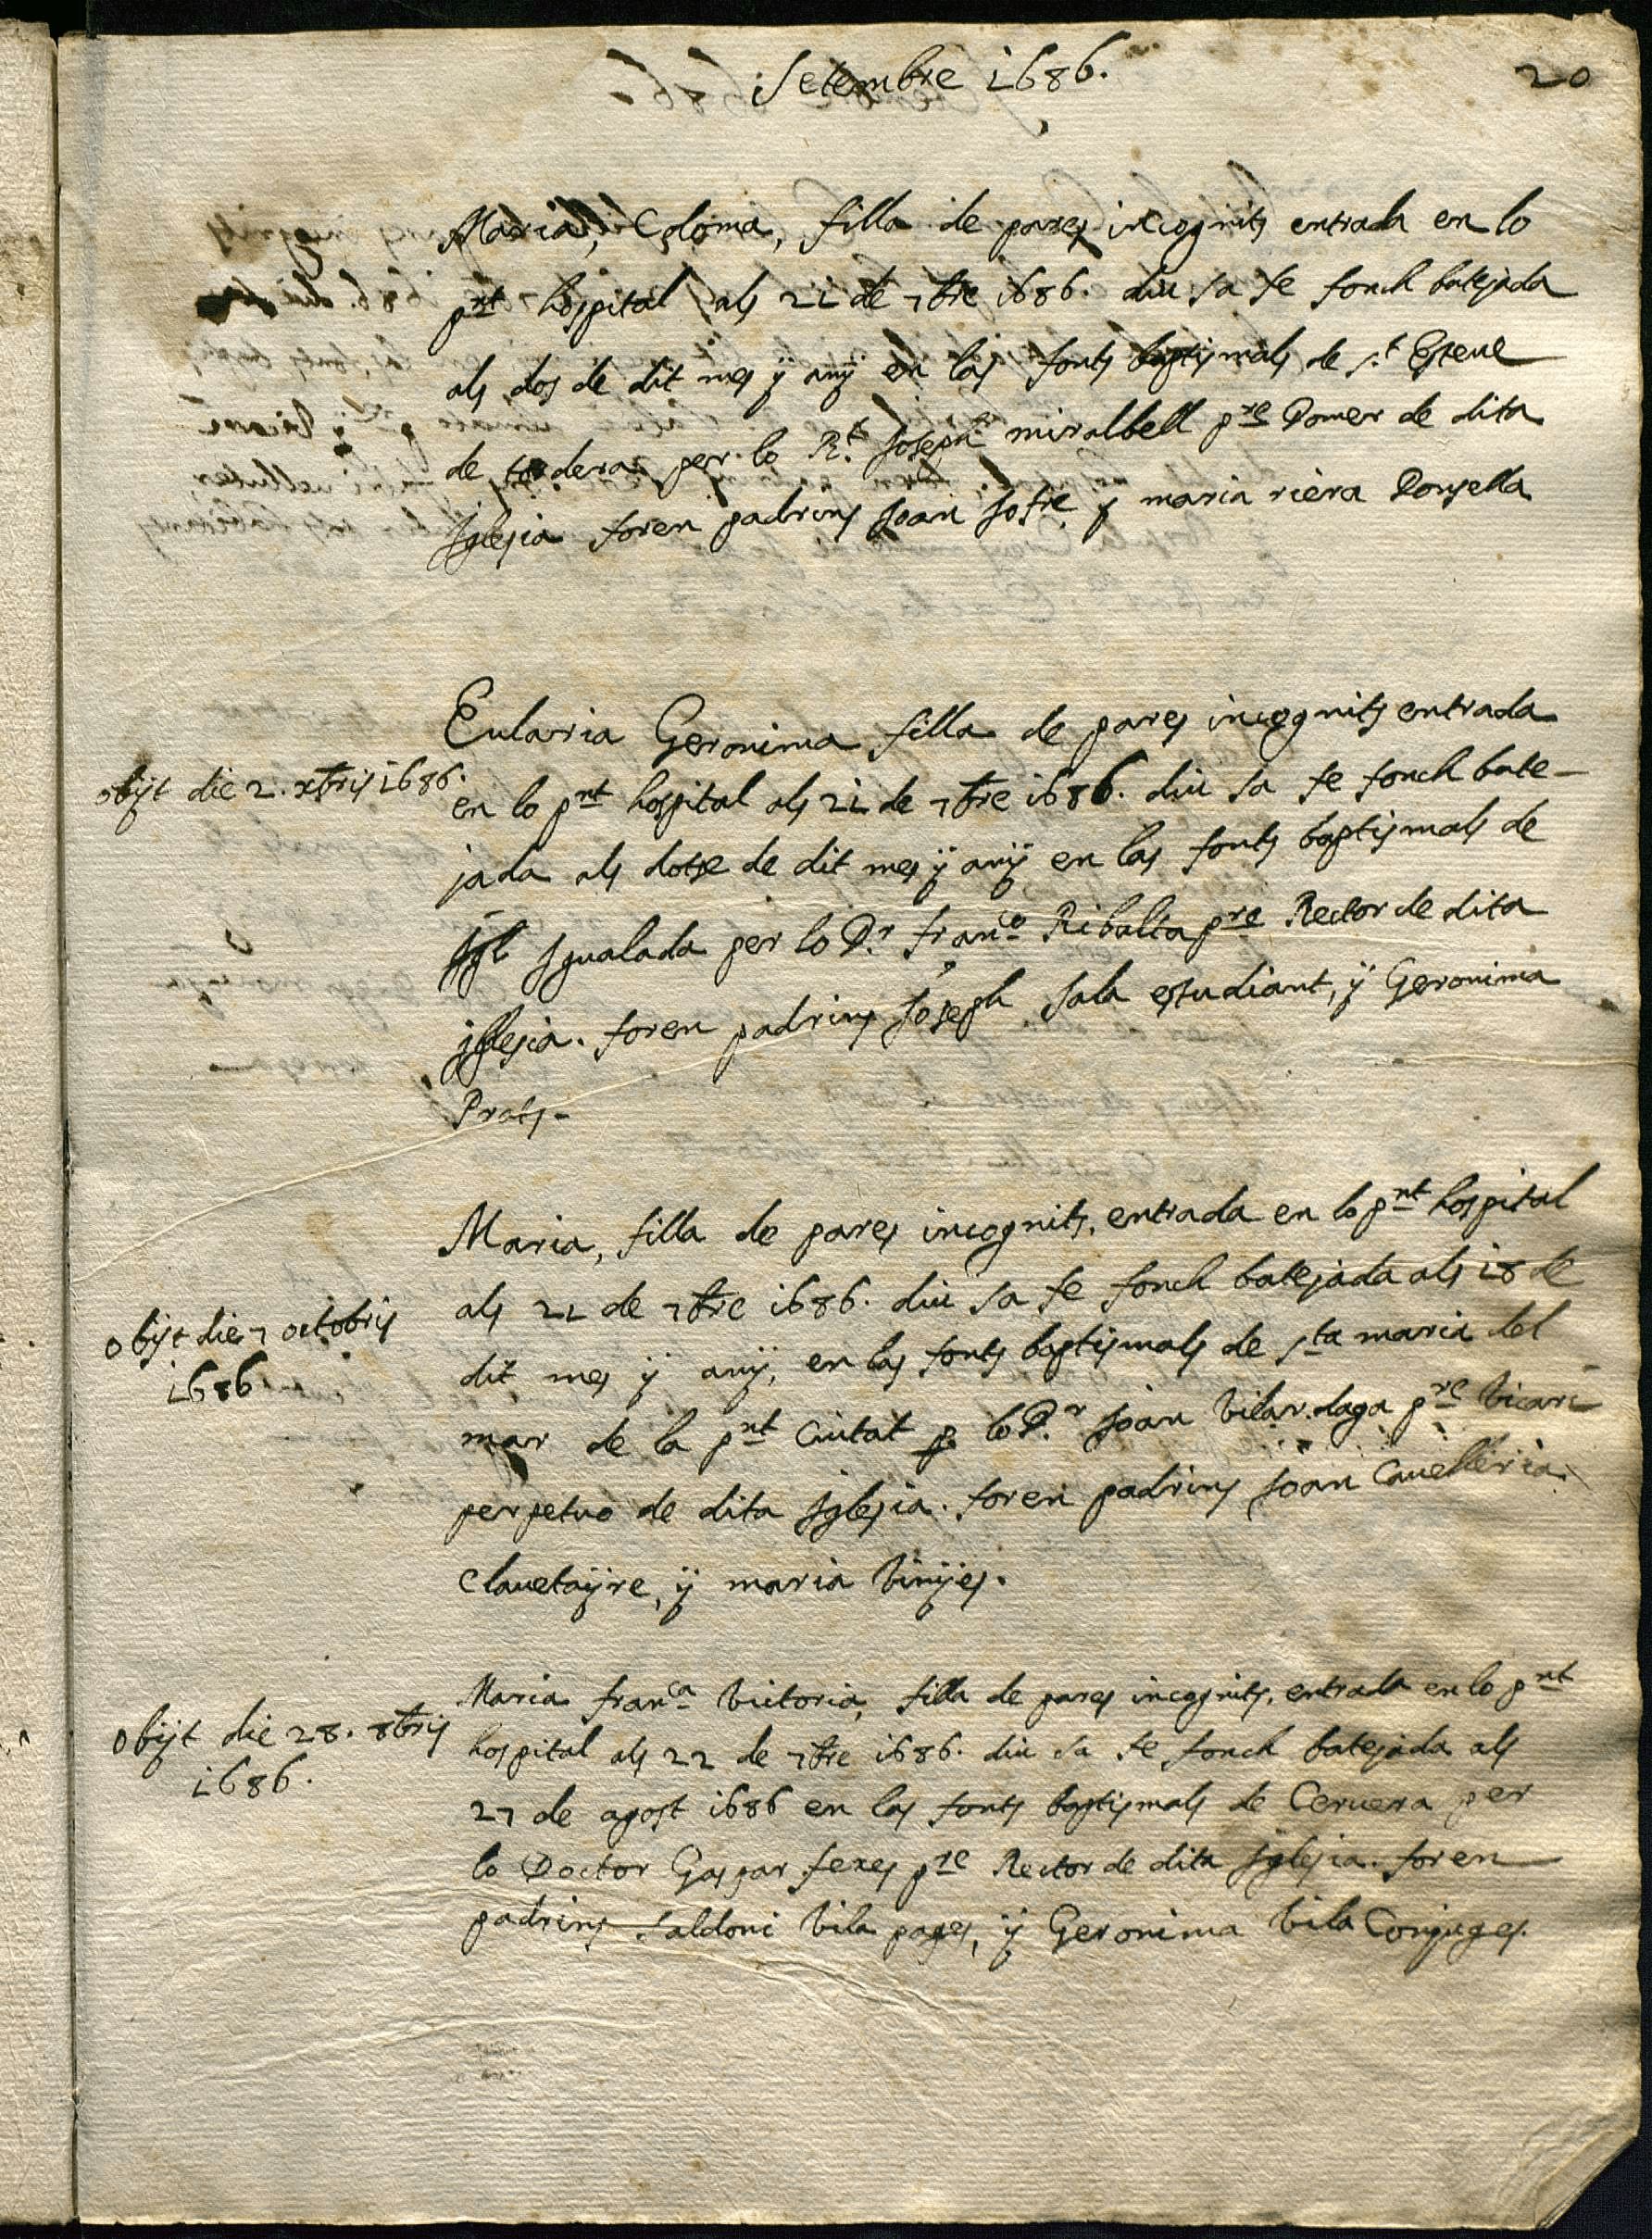 Setembre 1686.
20
Maria, Coloma, filla de pares incognits entrada en lo
pnt hospital als 21 de 7bre 1686. diu sa fe fonch batejada
als dos de dit mes ÿ anÿ en las fonts baptismals de st Esteve
de tordera per lo Rt Joseph miralbell pre Domer de dita
Iglesia foren padrins Joan Jofre y maria riera Donsella
Eularia Geronima filla de pares incognits entrada
obijt die 2. xbris 1686.
en lo pnt hospital als 21 de 7bre 1686. diu sa fe fonch bate-
jada als dotse de dit mes ÿ anÿ en las fonts baptismals de
Igualada per lo Dr franco Ribalta pre Rector de dita
iglesia. foren padrins Joseph Sala estudiant, ÿ Geronima
Prats-
Maria, filla de pares incognits, entrada en lo pnt hospital
als 21 de 7bre 1686. diu sa fe fonch batejada als 18 de
obijt die 7 octobris
1686
dit mes ÿ anÿ, en las fonts baptismals de sta maria del
mar de la pnt Ciutat p lo Dr Joan Vilardaga pre Vicari
perpetuo de dita Iglesia. foren padrins Joan Cauelleria
Clauetaÿre, ÿ maria Vinÿes.
Maria franca Victoria, filla de pares incognits, entrada en lo pnt
obijt die 28. 8bris
1686.
hospital als 22 de 7bre 1686. diu sa fe fonch batejada als
27 de agost 1686 en las fonts baptismals de Ceruera per
lo Doctor Gaspar fexes pre Rector de dita Iglesia. foren
padrins Saldoni Vila pages, ÿ Geronima Vila Conjuges.